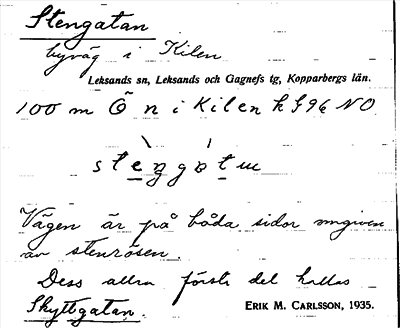 Stengatan
byväg i Kilen
Leksands sn, Leksands och Gagnefs tg, Kopparbergs län.
100 m Ö n i Kilen k f 96 NO.
Vägen är på båda sidor omgiven
av stenrösen.
Dess allra första del kallas
Skyttgatan.
ERIK M. CARLSSON, 1935.